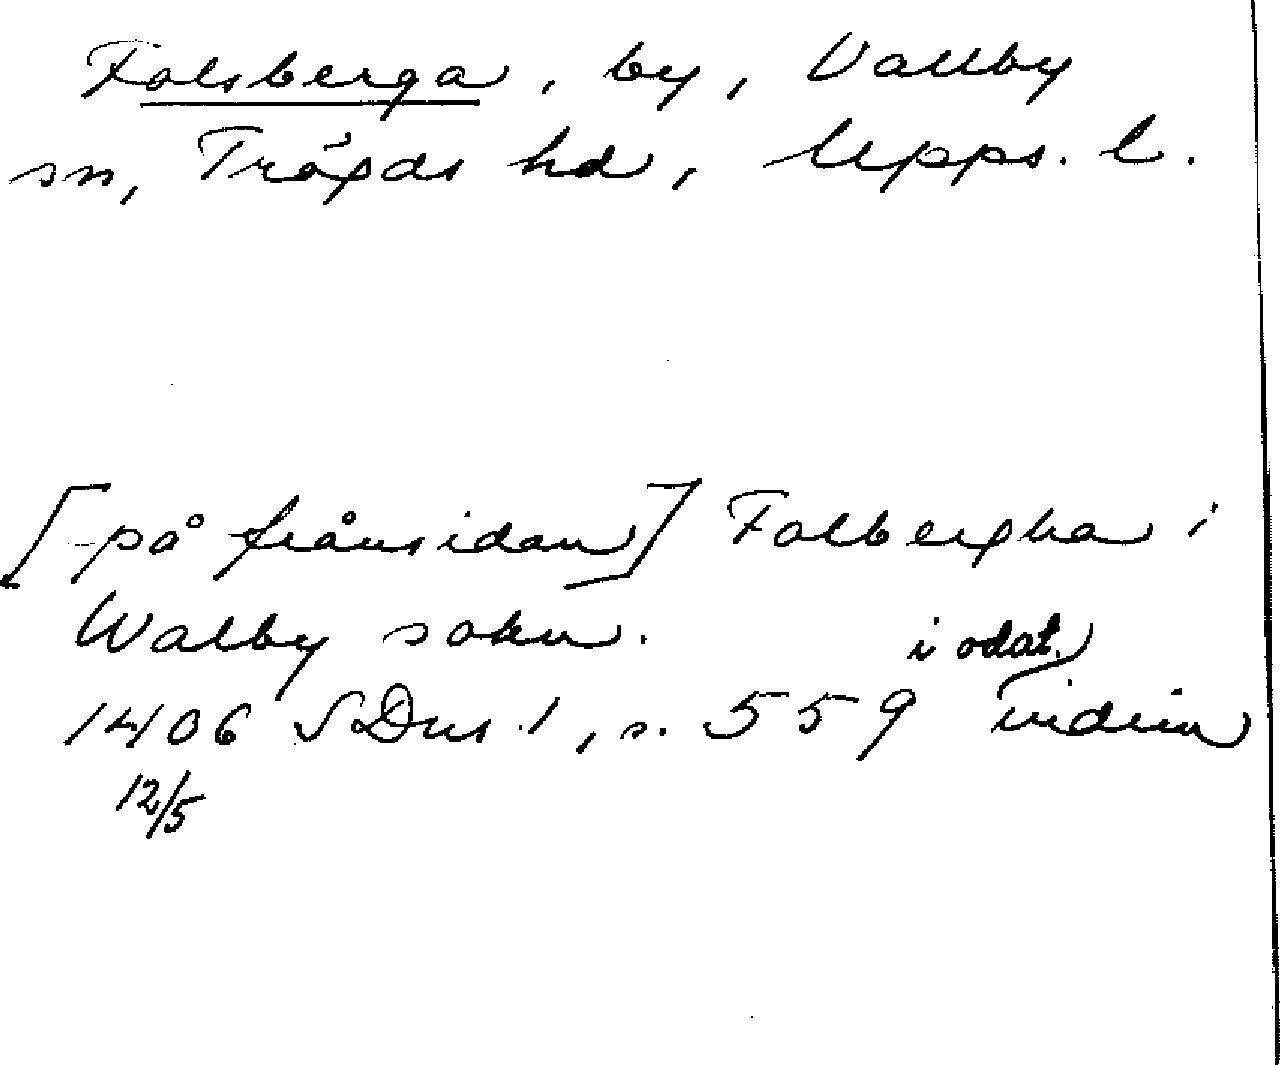 Folsberga, by, Vallby
sn, Trögds hd, Upps. l.
[på frånsidan] Folbergha i
Walby sokn.
i odat.
1406 SDns 1, s. 559 vidim
12/5